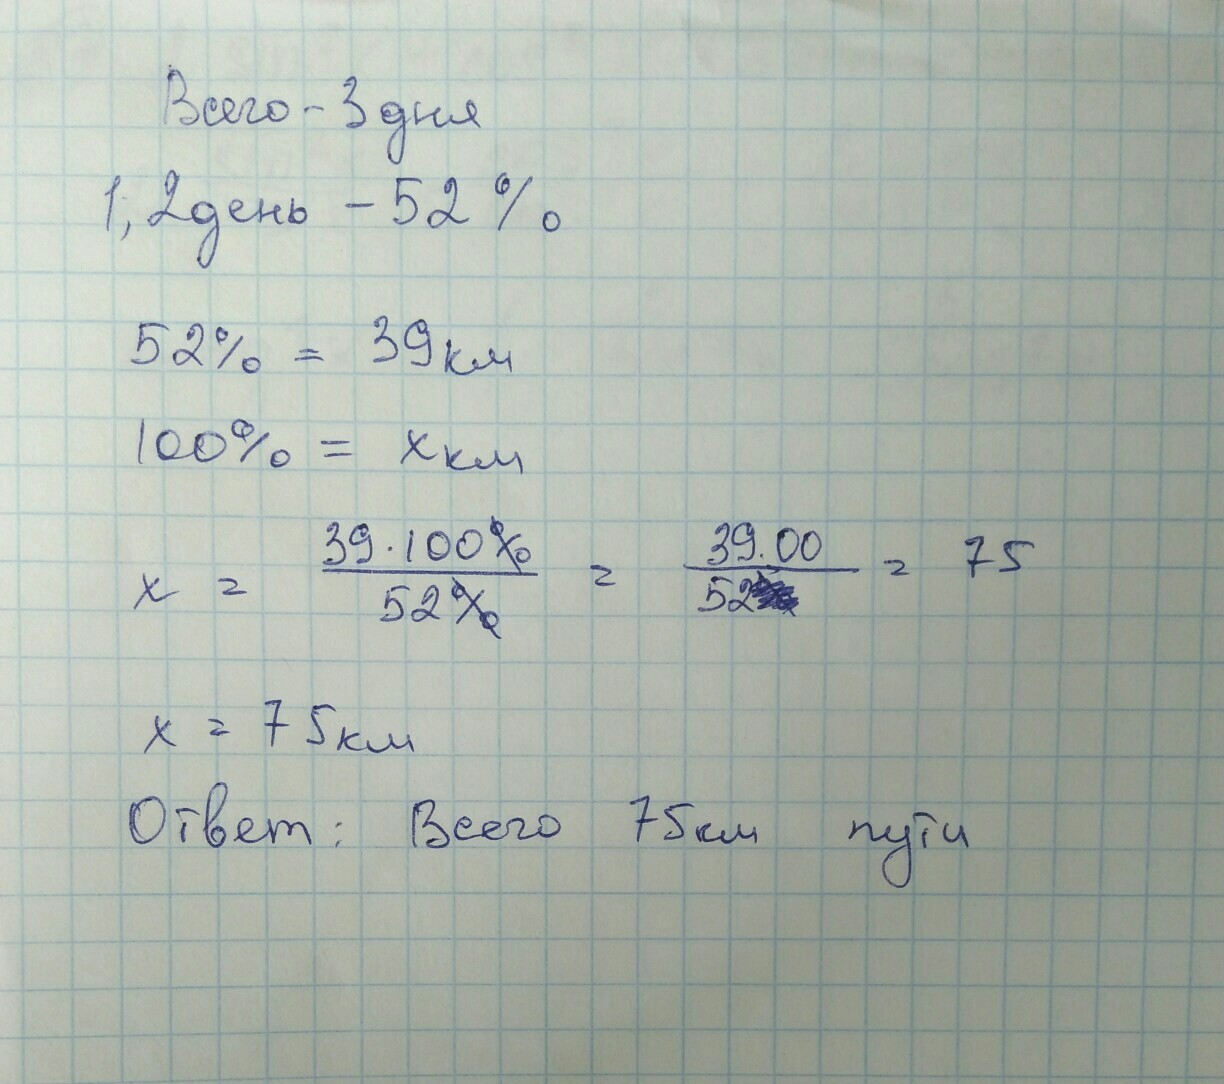 Всего - 3 дня
1, 2 день - 52 %
52% = 39 км
100% = x км
x = 39 · 100% / 52% = 39.00 / 52 = 75
x = 75 км
Ответ: Всего 75 км пути